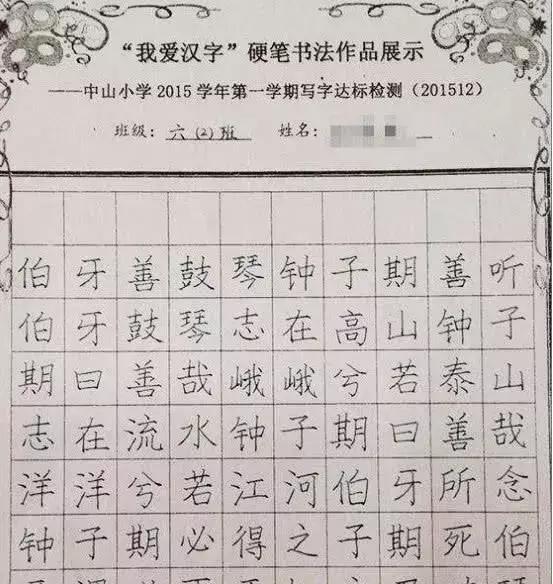 “我爱汉字”硬笔书法作品展示
——中山小学 2015 学年第一学期写字达标检测（201512）
班级：六(2)班 姓名：
伯牙善鼓琴钟子期善听
伯牙鼓琴志在高山钟子
期曰善哉峨峨兮若泰山
志在流水钟子期曰善哉
洋洋兮若江河伯牙所念
钟子期必得之子期死伯